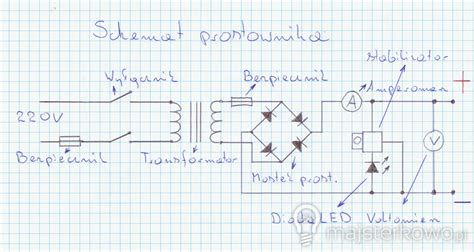 Schemat prostownika
Stabilizator
Wyłącznik
Bezpiecznik
Amperomierz
+
A
220V
V
Bezpiecznik
Transformator
Mostek prost.
-
Dioda LED
Voltomierz
majsterkowo.pl